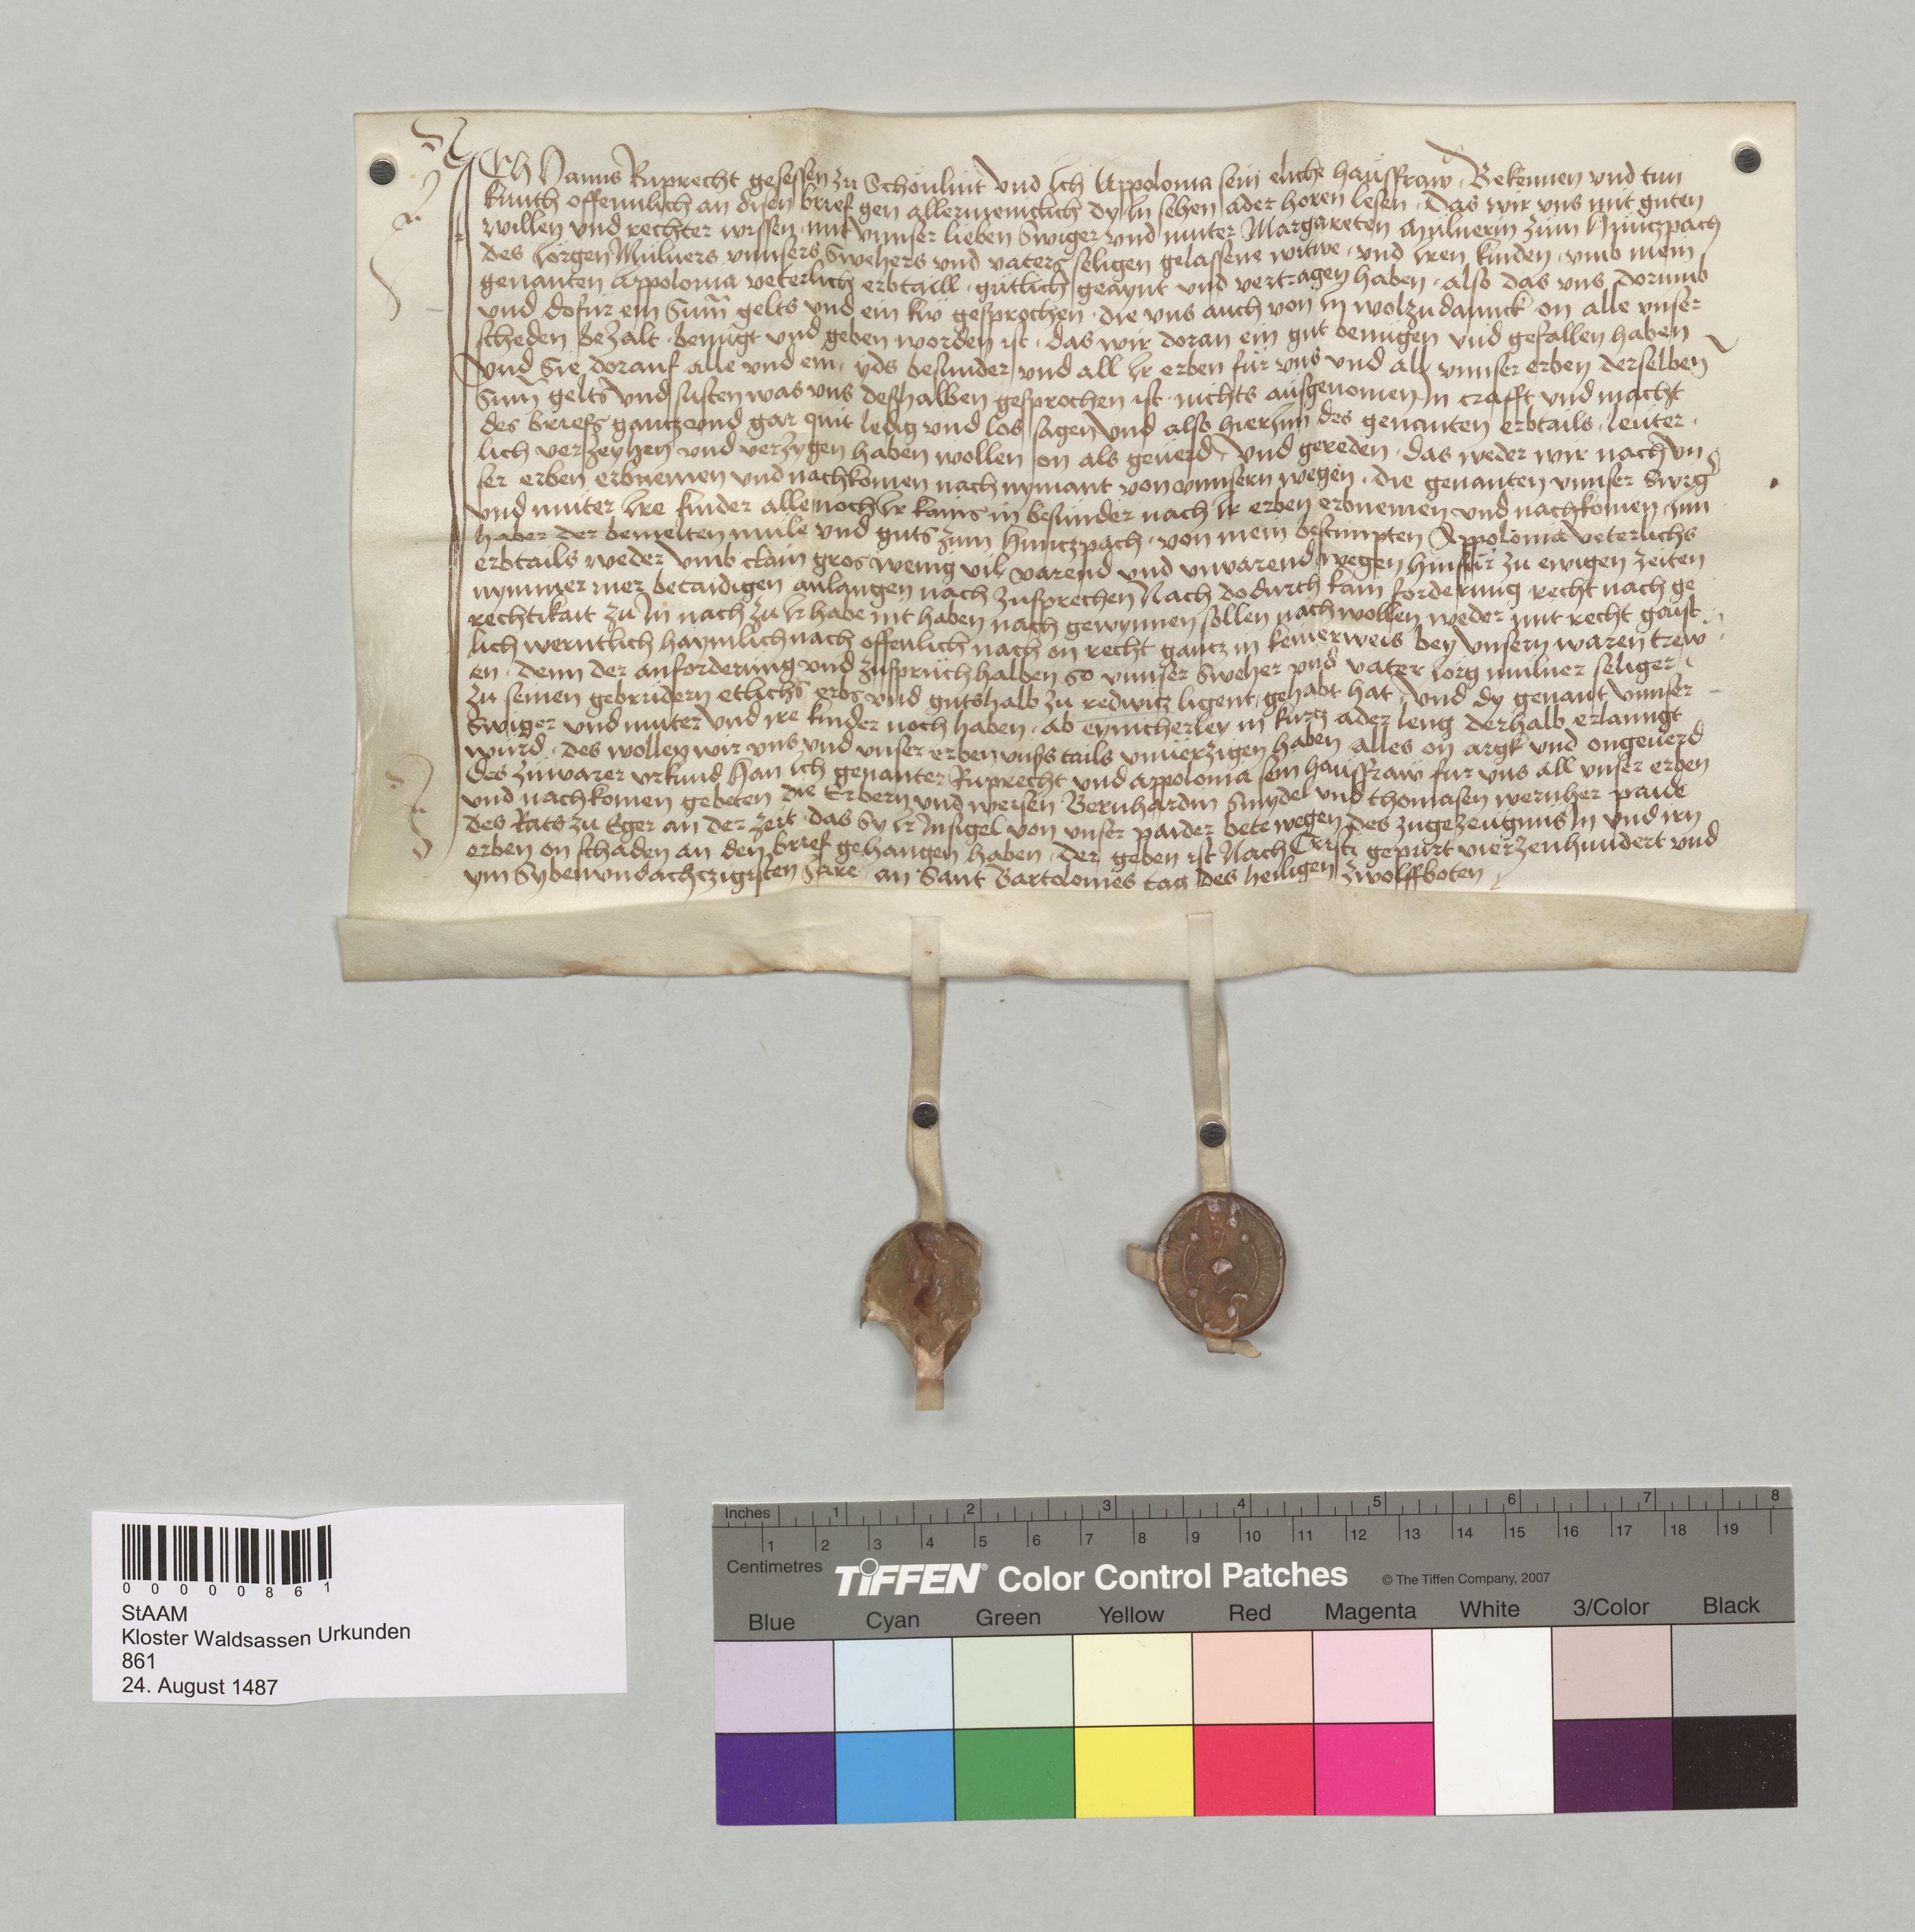 Ich Hanns Ruprecht gesessen zu Schönlint vnd Ich Appolonia sein eliche hausffraw Bekennen vnd tun
kunth offennlich an disen brief gen allermeniclich dy In sehen ader horen lesen Das wir vns mit guten
willen vnd rechter wissen mit vnnser lieben Swiger vnd muter Margareten Mulnerin zum Hunczpach
des Jorgen Mulners vnnsers Swehers vnd vaters seligen gelassene witwe vnd Iren kinden vmb mein
genanten Appolonia veterlich erbtaill gütlich geaynt vnd vertragen haben also das vns dorumb
vnd dofür ein Sum̄ gelts vnd ein kw gesprochen die vns auch von In wolzudannck on alle vnser
scheden bezalt benügt vnd geben worden ist das wir doran ein gut benügen vnd gefallen haben
vnd Sie dorauf alle vnd ein yds besunder vnd all Ir erben für vns vnd all vnnser erben derselben
Sum̄ gelts vnd susten was vns deshalben gesprochen ist nichts ausgenomen In crafft vnd macht
des briefs gantz vnd gar quit ledig vnd los sagen vnd also hierInn des genanten erbtails leuter
lich verzeyhen vnd verzygen haben wollen on als geuerd vnd gereden das weder wir nach vn
ser erben erbnemen vnd nachkomen nach nymant von vnnsern wegen die genanten vnnser Swig
vnd muter Ire kinder alle noch Ir kains in besunder nach Ir erben erbnemen vnd nachkomen Inn
haber der bemelten mule vnd guts zum Hunczpach von mein bestimpten Appolonia veterlichs
erbtails weder vmb clain gros wenig vil varend vnd vnvarend wegen hinfür zu ewigen zeiten
nymmer mer betaidigen anlangen nach zusprechen Nach dodurch kain forderung recht nach ge
rechtikait zu In nach zu Ir habe nit haben nach gewynnen sollen nach wollen weder mit recht gaist
lich werntlich haymlich nach offenlich nach on recht gantz in keinerweis bey vnsern waren trew
en denn der anforderung vnd zuspruch halben so vnnser Sweher vnd vater Jorg mulner seliger
zu seinen gebrudern etlichs erbs vnd gutshalb zu redwitz ligent gehabt hat vnd dy genant vnnser
Swiger vnd muter vnd ire kinder noch haben ab eynicherley in kurtz ader leng derhalb erlanngt
würd des wollen wir vns vnd vnser erben vnsers tails vnuerzigen haben alles on argk vnd ongeuerd
des zuwarer vrkund Han Ich genanter Ruprecht vnd Appolonia sein hausffraw fur vns all vnser erben
vnd nachkomen gebeten die Erbern vnd weisen Bernhardin Smydel vnd thomasen wernher paide
des Rats zu Eger an der zeit das Sy Ir Insigel von vnser paider bete wegen des zugezeugnus In vnd irn
erben on schaden an den brief gehangen haben der geben ist Nach Cristi gepurt vierzenhundert vnd
ym Sybenvndachczigisten Jare an Sant Bartolomes tag des heiligen zwolffboten
00000861
StAAM
Kloster Waldsassen Urkunden
861
24. August 1487
Inches 1 2 3 4 5 6 7 8
1 2 3 4 5 6 7 8 9 10 11 12 13 14 15 16 17 18 19
Centimetres
TIFFEN® Color Control Patches © The Tiffen Company, 2007
Blue Cyan Green Yellow Red Magenta White 3/Color Black